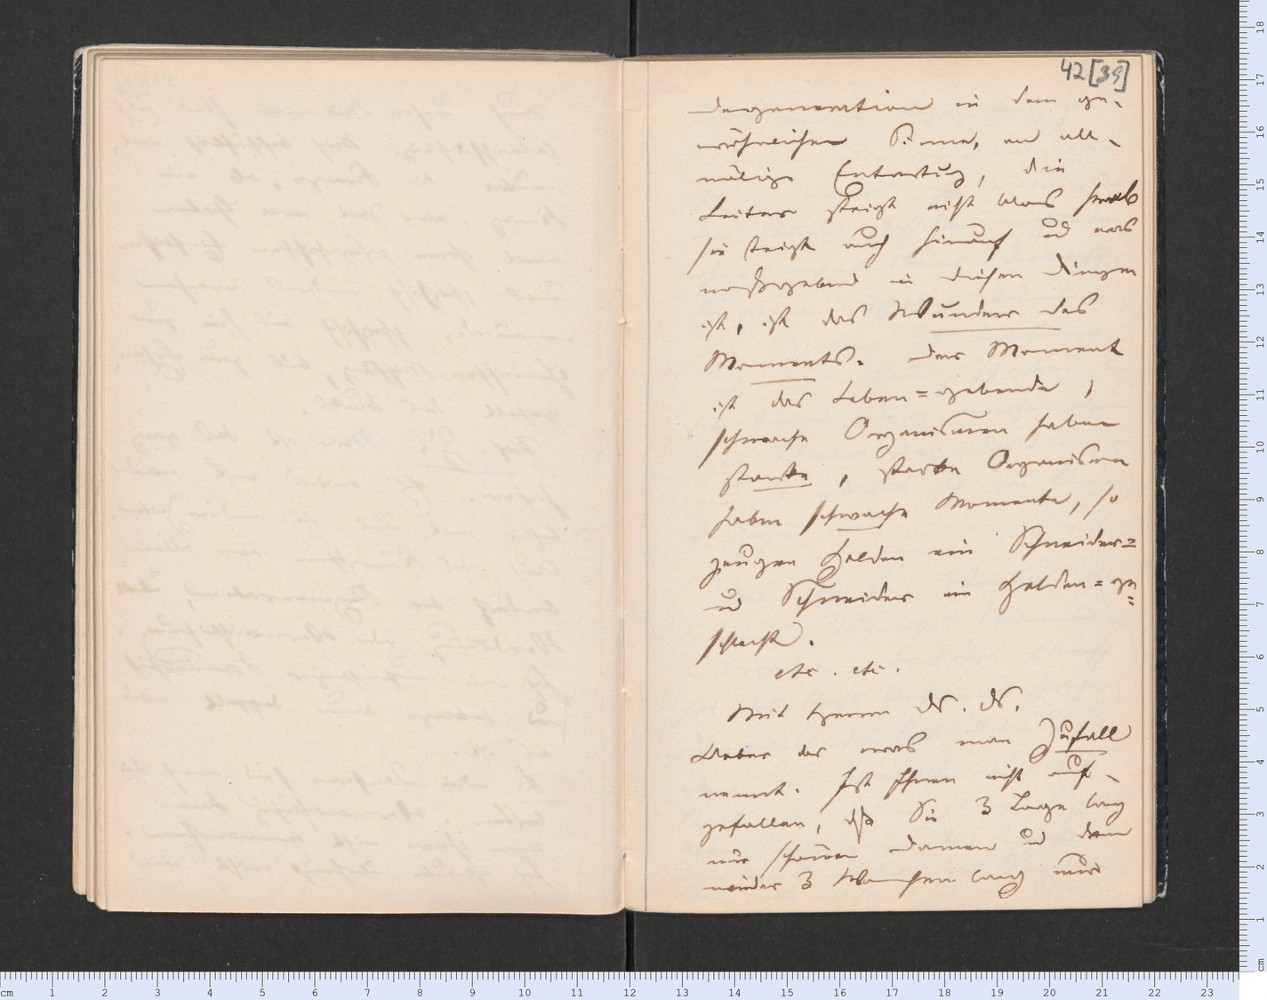 42[39]
Degeneration in dem ge-
wöhnlichen Sinne, an all-
mälige Entartung, die
Leiter steigt nicht blos herab
sie steigt auch hinauf und was
maßgebend in diesen Dingen
ist, ist das Wunder des
Moments. Der Moment
ist das Leben=gebende,
schwache Organismen haben
starke, starke Organismen
haben schwache Momente, so
zeugen Helden ein Schneider=
und Schneider ein Helden=ge=
schlecht.
etc. etc.
Mit Herrn
Ueber das was man Zufall
nennt. Ist Ihnen nicht auf-
gefallen, daß Sie 3 Tage lang
nur schöne Damen und dann
wieder 3 Wochen lang nur